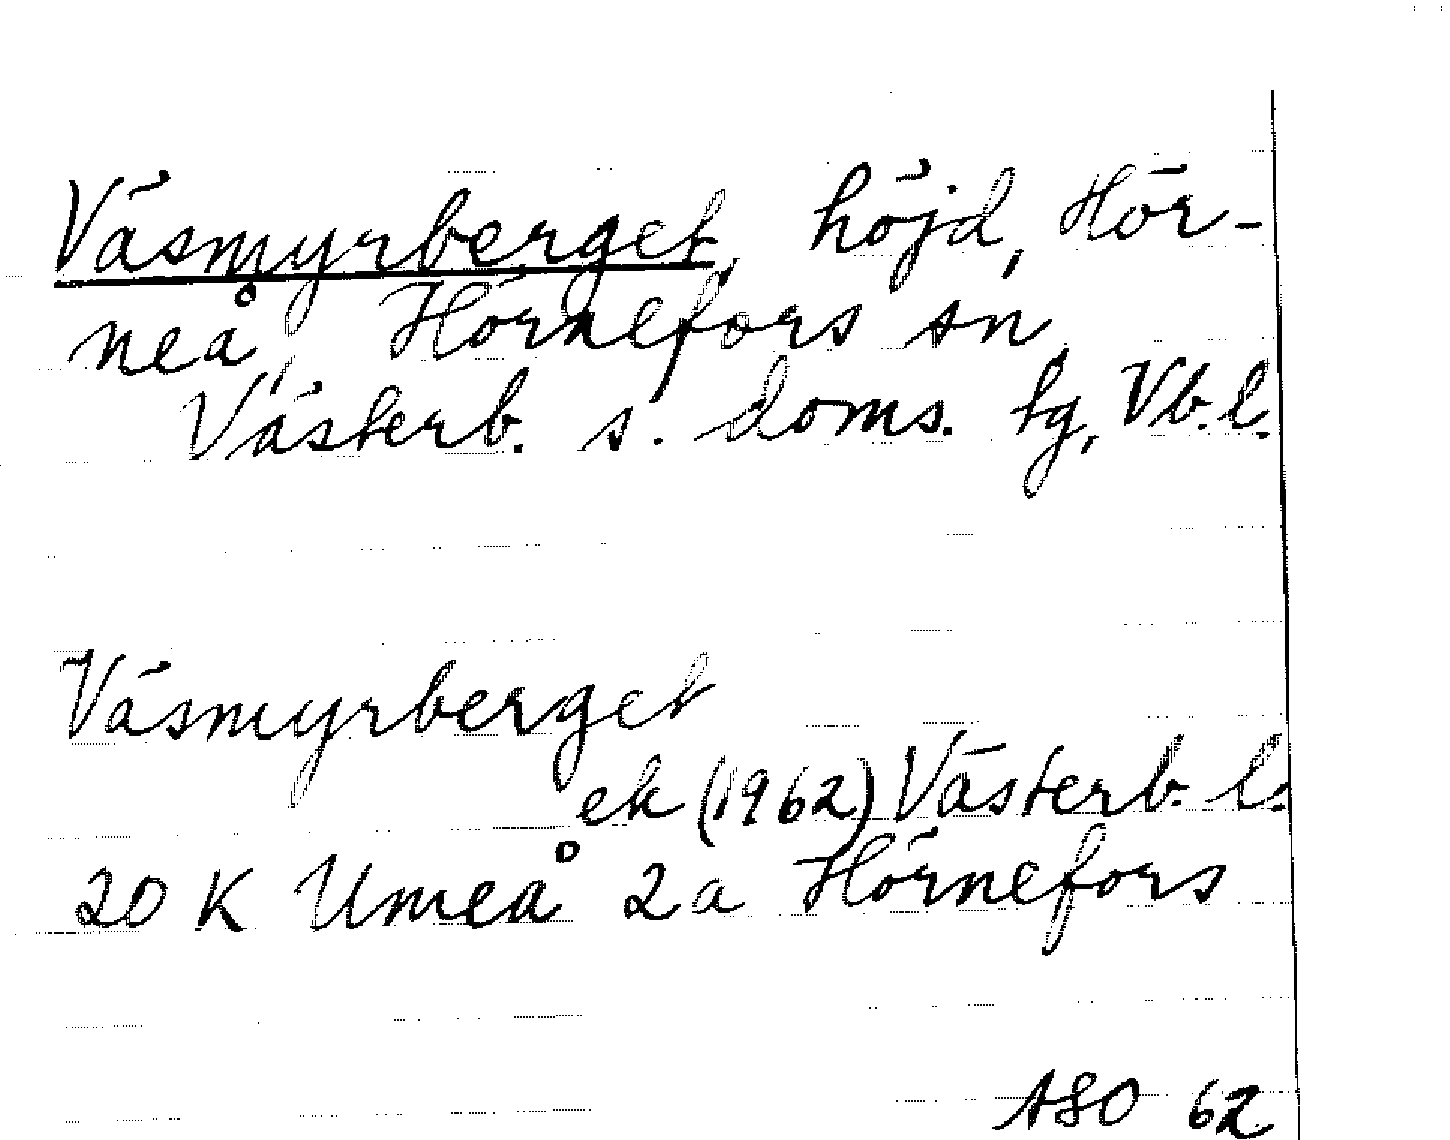 Väsmyrberget, höjd, Hör-
neå, Hörnefors sn,
Västerb. s. doms. tg, Vb. l.
Väsmyrberget
ek (1962) Västerb. l.
20 K Umeå 2a Hörnefors
ASO 62